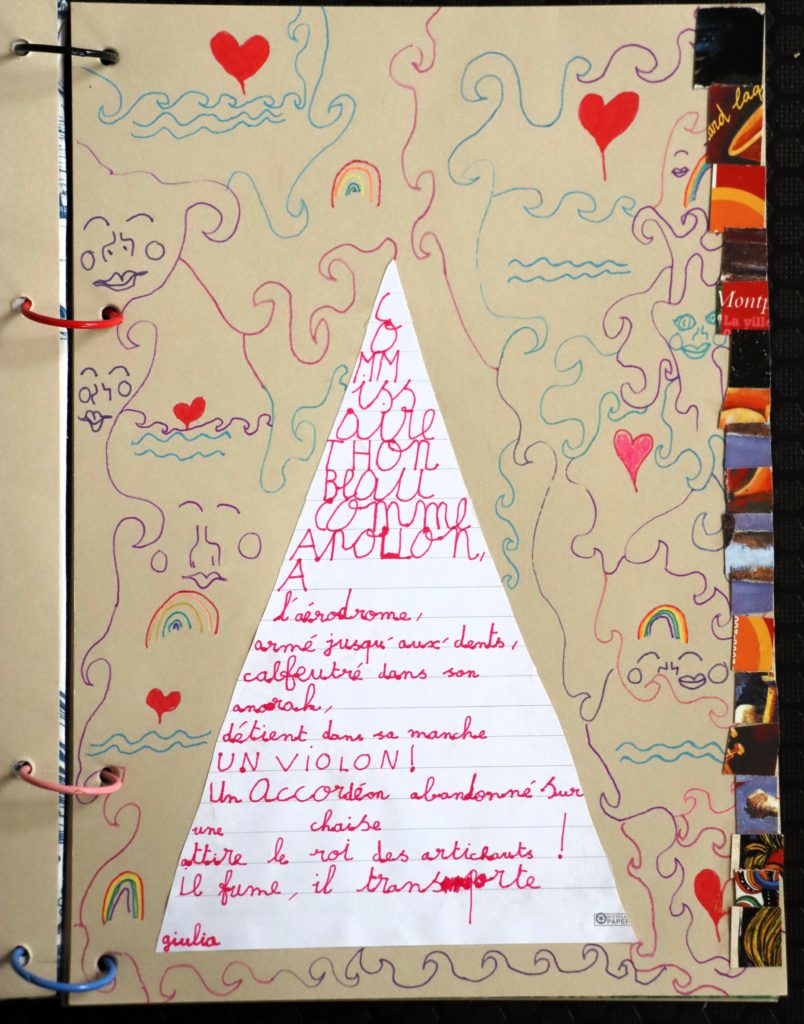 ard laq
Montp
La ville
C
O
MM
iss
aire
THON
Beau
comme
APOLLON,
A
l'aérodrome,
armé jusqu'aux dents,
calfeutré dans son
anorak,
détient dans sa manche
UN VIOLON!
Un Accordéon abandonné sur
une chaise
attire le roi des artichauts !
il fume, il transporte
giulia
PAPER